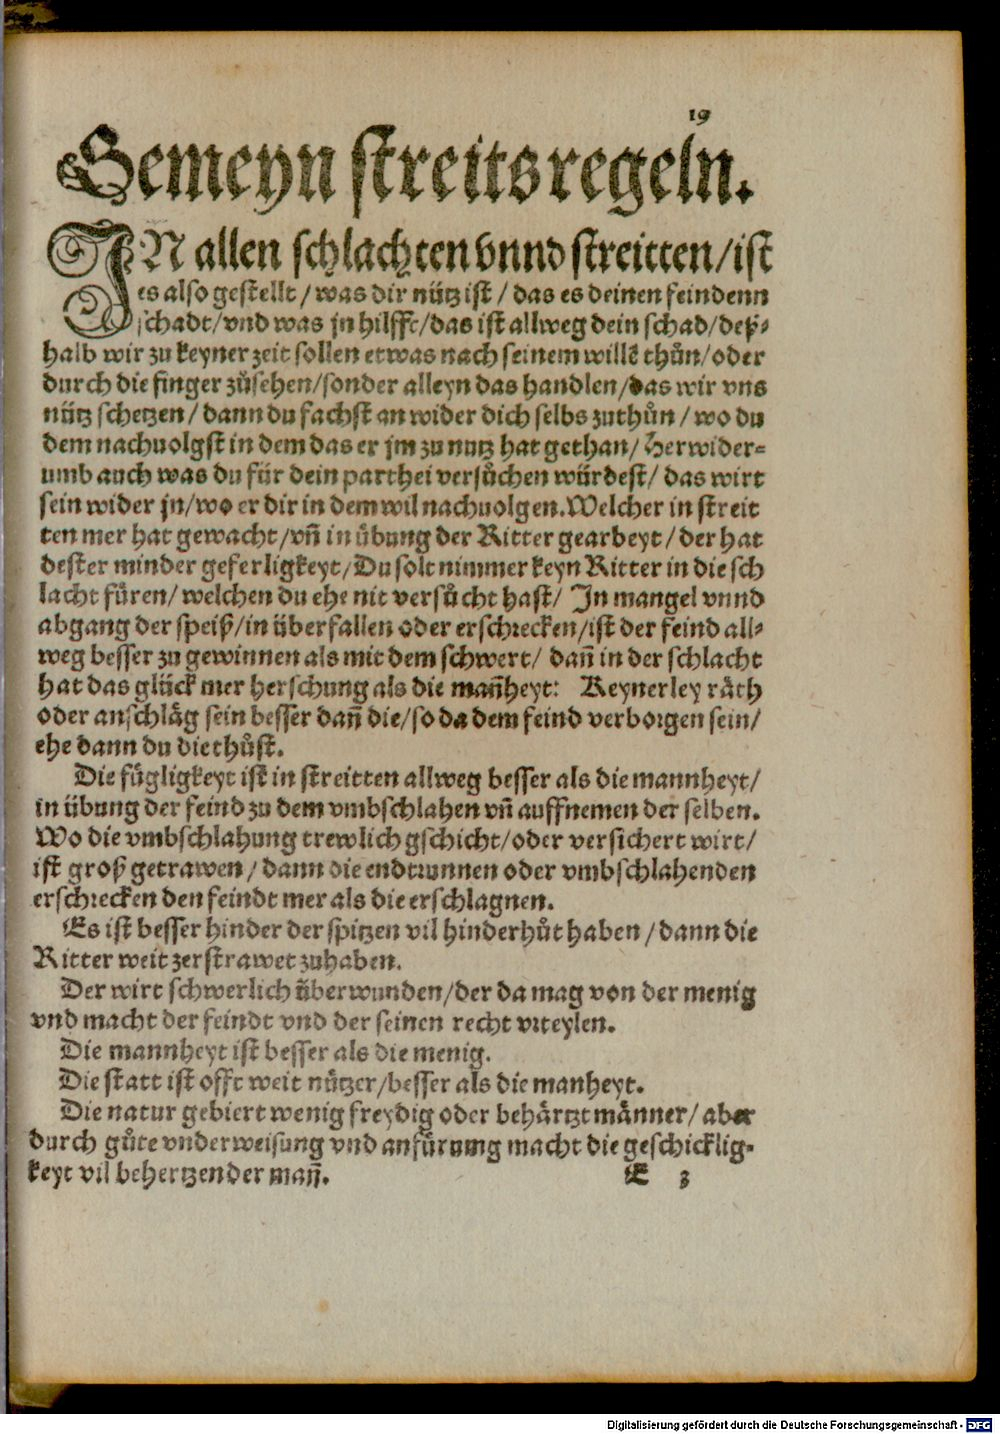 19
Gemeyn streits regeln.
IN allen schlachten vnnd streitten/ist
es also gestellt/was dir nütz ist/das es deinen feindenn
schadt/vnd was jn hilfft/das ist allweg dein schad/deß⸗
halb wir zu keyner zeit sollen etwas nach seinem willē thůn/oder
durch die finger zůsehen/sonder alleyn das handlen/das wir vns
nütz schetzen/dann du fachst an wider dich selbs zuthůn/wo du
dem nachuolgst in dem das er jm zu nutz hat gethan/Herwider⸗
umb auch was du für dein parthei versůchen würdest/das wirt
sein wider jn/wo er dir in dem wil nachuolgen.Welcher in streit
ten mer hat gewacht/vñ in übung der Ritter gearbeyt/der hat
dester minder geferligkeyt/Du solt nimmer keyn Ritter in die sch
lacht füren/welchen du ehe nit versůcht hast/In mangel vnnd
abgang der speiß/in überfallen oder erschrecken/ist der feind all⸗
weg besser zu gewinnen als mit dem schwert/dañ in der schlacht
hat das glück mer herschung als die mañheyt: Keynerley räth
oder anschläg sein besser dañ die/so da dem feind verborgen sein/
ehe dann du die thůst.
Die fügligkeyt ist in streitten allweg besser als die mannheyt/
in übung der feind zu dem vmbschlahen vñ auffnemen der selben.
Wo die vmbschlahung trewlich gschicht/oder versichert wirt/
ist groß getrawen/dann die endtrunnen oder vmbschlahenden
erschrecken den feindt mer als die erschlagnen.
Es ist besser hinder der spitzen vil hinderhůt haben/dann die
Ritter weit zerstrawet zuhaben.
Der wirt schwerlich überwunden/der da mag von der menig
vnd macht der feindt vnd der seinen recht vrteylen.
Die mannheyt ist besser als die menig.
Die statt ist offt weit nützer/besser als die manheyt.
Die natur gebiert wenig freydig oder behärtzt männer/aber
durch gůte vnderweisung vnd anfürung macht die geschicklig⸗
keyt vil behertzender mañ.
E 3
Digitalisierung gefördert durch die Deutsche Forschungsgemeinschaft - DFG